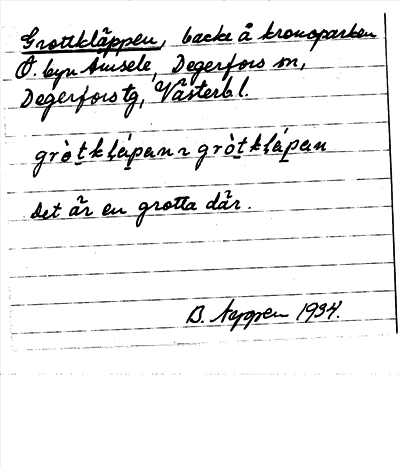 Grottkläppen, backe å kronoparken
Ö. byn Åmsele, Degerfors sn,
Degerfors tg, Västerb l.
gròt̠kḷáp̠an ~ gròt̠kḷáp̠an
Det är en grotta där.
B. 1934.